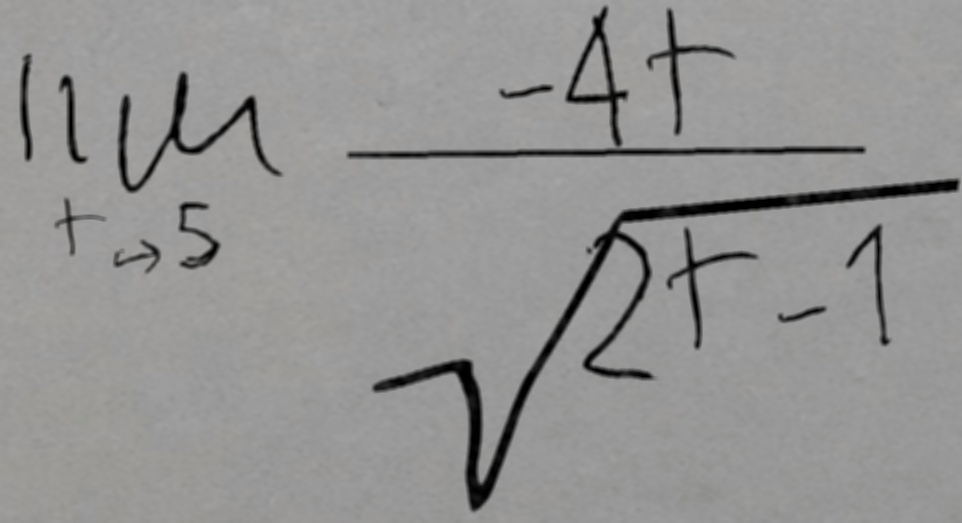 lim_{t \to 5} \frac{-4t}{\sqrt{2t-1}}